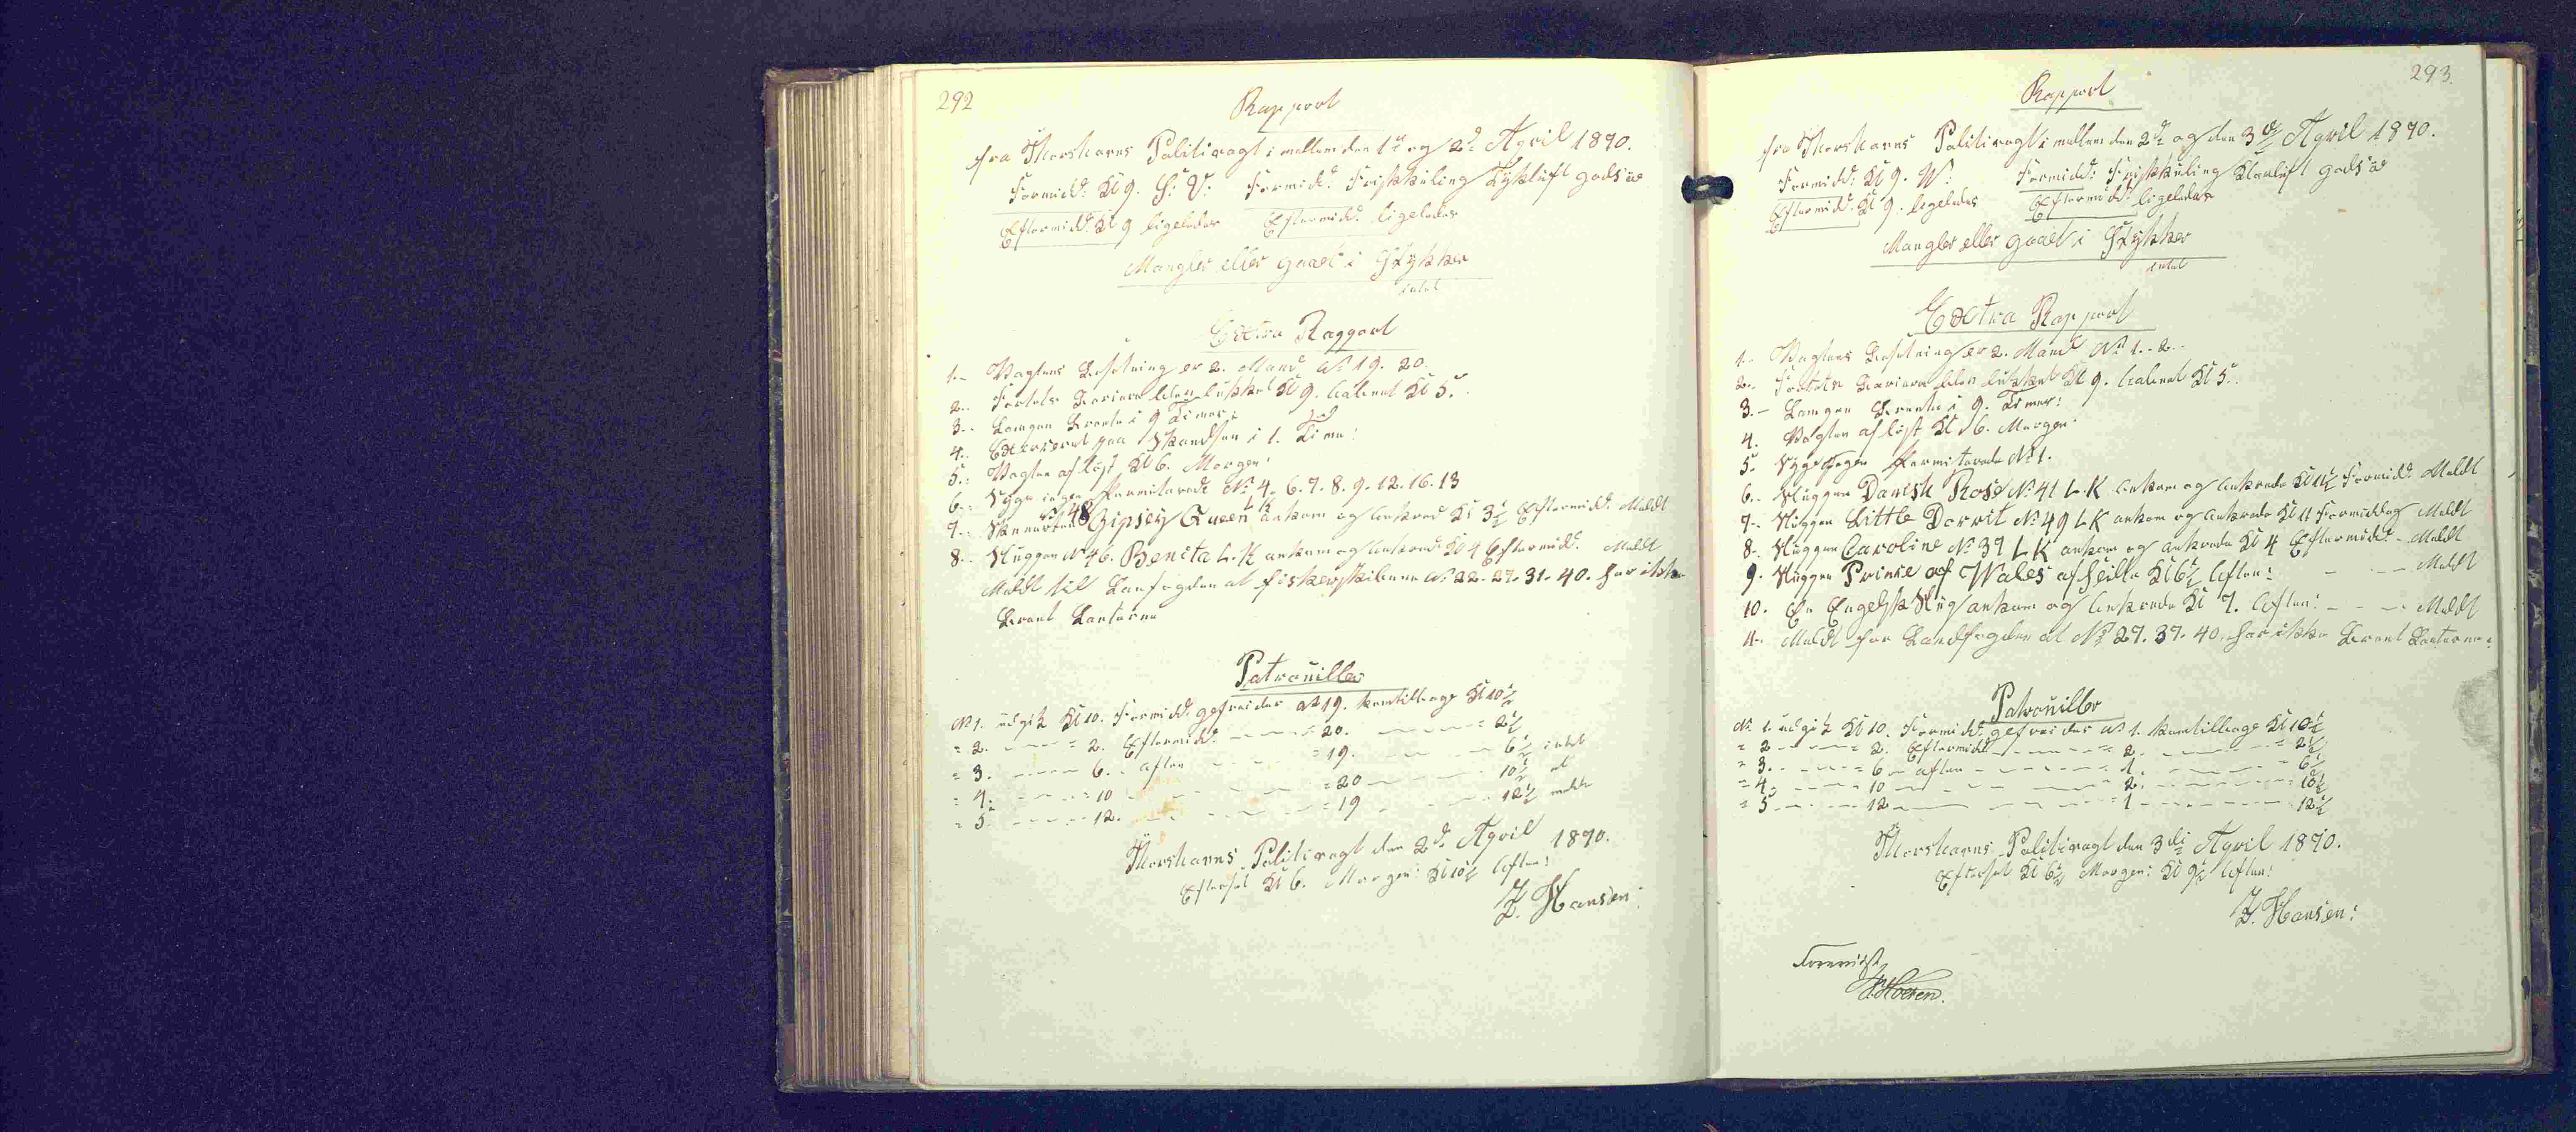 292
Rapport
fra Thorshavns Politivagt i mellem den 1te og 2den April 1890.
Formidd: Kl 9. S: V: Formidd: Friskkuling Tykluft godt
Eftermidd: Kl 9 ligeledes Eftermidd: ligeledes
Mangler eller gaaet i Stykker
intet
Extra Rapport
1.- Vagtens Besetning er 2. Mand No 19. 20.
2.- Fortets Barriere blev lukket Kl 9. aabnet Kl 5.
3.- Lampen brente i 9 Timer:
4.- Exerceret paa Skandsen i 1. Time:
5.- Vagten afløst Kl 6. Morgen:
6.- Syge ingen Permiterede No 4. 6. 7. 8. 9. 12. 16. 13
7.- Skonnerten No 48 Gipsey Queen LK ankom og ankred Kl 3½ Eftermidd: Meldt
8.- Sluppen No 46. Benita L.K ankom og ankrede Kl 4 Eftermidd: Meldt
Meldt til Landfogden at fiskerskibene No 22. 27. 31. 40. har ikke
brent Lanterne
Patrouiller
No 1. udgik Kl 10. Formidd: gefreider No 19. kom tilbage Kl 10½
= 2. - - - = 2. Eftermidd: - - - = 20. - - - = 2½
= 3. - - - 6. - aften - - - = 19. - - - 6½ intet
= 4. - - - = 10 - - - = 20 - - - 10½ at
= 5 - - - - 12. - - - = 19 - - - 12½ melde
Thorshavns Politivagt den 2den April 1890.
Efterset Kl 6. Morgen: Kl 10½ Aften:
Z. Hansen:
293.
Rapport
fra Thorshavns Politivagt i mellem den 2den og den 3die April 1890.
Formidd: Kl 9. W: Formidd: Friskkuling Klarluft godt
Eftermidd: Kl 9. ligeledes Eftermidd: ligeledes
Mangler eller gaaet i Stykker
intet
Extra Rapport
1.- Vagtens Besetning er 2. Mand No 1. - 2.-
2.- Fortets Barriere blev lukket Kl 9. aabnet Kl 5.
3.- Lampen brente i 9. Timer:
4. Vagten afløst Kl 6. Morgen:
5. Syge Ingen Permiterede No 1.
6.- Sluppen Danish Rose No 41 L.K ankom og ankrede Kl 11½ Formidd: Meldt
7.- Sluppen Little Dorrit No 49 LK ankom og ankrede Kl 11 Formiddag Meldt
8.- Sluppen Caroline No 39 LK ankom og ankrede Kl 4 Eftermidd: - Meldt
9. Sluppen Prinse af Wales afseilte Kl 6½ Aften: - - - Meldt
10. En Engelsk Slup ankom og ankrede Kl 7. Aften: - - - Meldt
11. Meldt for Landfogden at No 27. 37. 40. har ikke brent Lanterne:
Patrouiller
No 1. udgik Kl 10. Formidd: gefreider No 1. kom tilbage Kl 10½
= 2 - - - = 2. Eftermidd: - - - = 2. - - - = 2½
= 3. - - - = 6 - aften - - - = 1. - - - = 6½
= 4. - - - 10 - - - 2. - - - 10½
= 5 - - - 12 - - - = 1 - - - 12½
Thorshavns Politivagt den 3die April 1890.
Efterset Kl 6½ Morgen: Kl 9½ Aften:
Z. Hansen:
Forevist